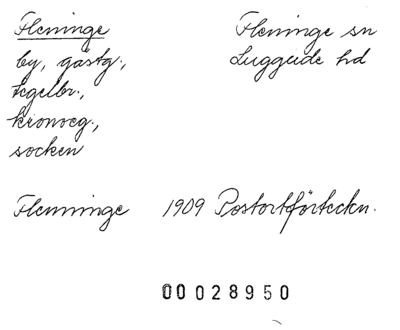 Fleninge
by, gästg.,
tegelbr.,
kronoeg.,
socken
Fleninge sn
Luggude hd
Flenninge 1909 Postortförteckn.
00028950